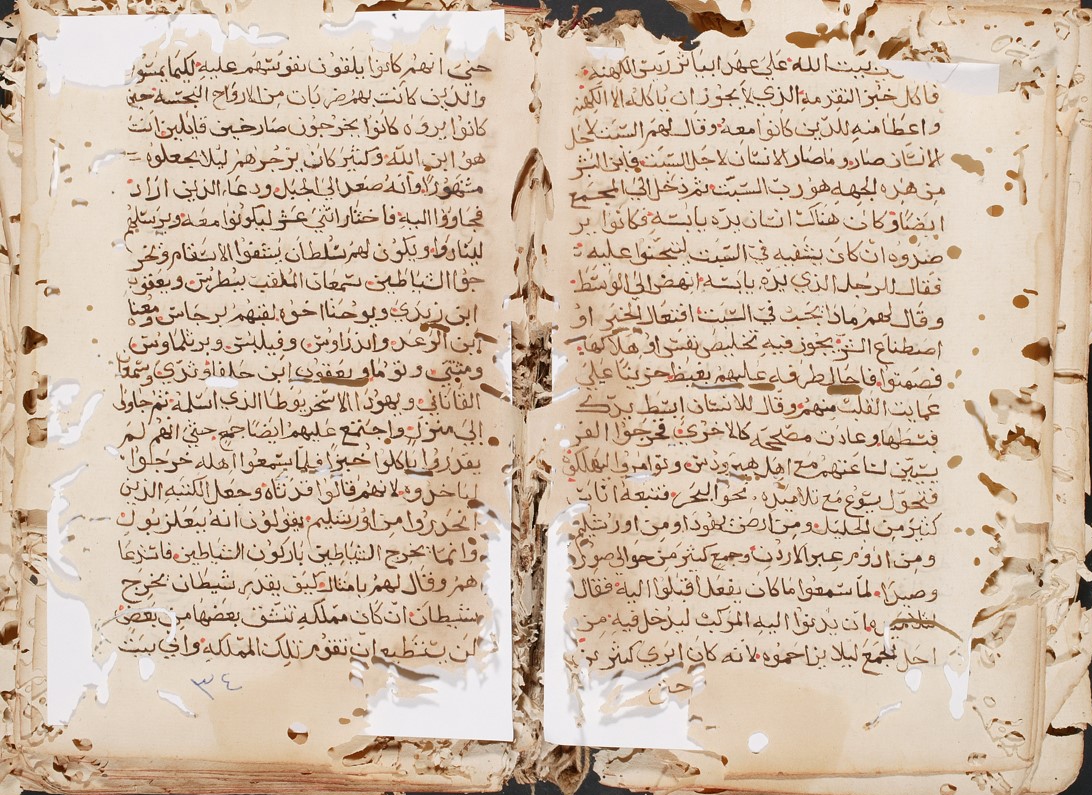 بيت الله على عهد ابياثر رييس الكهنة
فاكل خبز التقدمه الذي لا يجوز ان ياكله الا الكهنه
واعطا منه للذين كانوا معه وقال لهم السبت لاجل
الانسان صار وما صار الانسان لاجل السبت فابن البشر
من هذه الجهه هو رب السبت ثم دخل الى المجمع
ايضا وكان هناك انسان يده يابسة فكانوا ير
صدوه ان كان يشفيه في السبت ليتحنوا عليه
فقال للرجل الذي يده يابسه انهض الى الوسط
وقال لهم ماذا يجب في السبت افتعال الخير او
اصطناع الشر يجوز فيه تخليص نفس او هلاكها
فصمتوا فاجال طرفه عليهم بغيظ حزينا على
عمايت القلب منهم وقال للانسان ابسط يدك
فبسطها وعادت مصلحه كالاخرى فخرجوا الفر
يسيين لساعتهم مع اهل هيرودس وتوامروا ليهلكوه
فتحول يسوع مع تلاميذه نحو البحر فتبعه اناس
كثير من الجليل ومن ارض يهودا ومن اورشليم
ومن ادوم عبر الاردن وجمع كثير من حوالي صور
وصيدا لما سمعوا ما كان يفعل اقبلوا اليه فقال
لتلاميذه ان يدنوا اليه المركب ليدخل فيه من
اجل الجمع ليلا يزاحموه لانه كان ابرى كثيرين
حتى
حتى انهم كانوا يلقون نفوسهم عليه لكيما يمسوا
والذين كانت بهم ضربات من الارواح النجسه حين
كانوا يروه كانوا يخرجون صارخين قايلين انت
هو ابن الله وكثير كان يزجرهم ليلا يجعلوه
مشهورا وانه صعد الى الجبل ودعا الذين اراد
فجاووا اليه فاختار اثني عشر ليكونوا معه ويرسلهم
لينادوا ويكون لهم سلطان يشفوا الاسقام ويخر
جوا الشياطين سمعان الملقب بطرس ويعقوب
ابن زبدي ويوحنا اخوه لقبهم برجاس معنا
ابن الرعد واندراوس وفيلبس وبرتلماوس
ومتى وتوما ويعقوب ابن حلفا وتدي وسمعا
القاناني ويهودا الاسخريوطا الذي اسلمه ثم جاوا
الى منزل واجتمع عليهم ايضا جمع حتى انهم لم
يقدروا ياكلوا خبزا فلما سمعوا اهله خرجوا
لياخذوه لانهم قالوا قد تاه وجعل الكتبه الذين
انحدروا من اورشليم يقولون انه ببعلزبول
وانما يخرج الشياطين باركون الشياطين فاستدعا
هم وقال لهم بامثال كيف يقدر شيطان يخرج
شيطان ان كان مملكه تنشق بعضها من بعض
لن يستطيع ان تقوم تلك المملكه واي بيت
٣٤